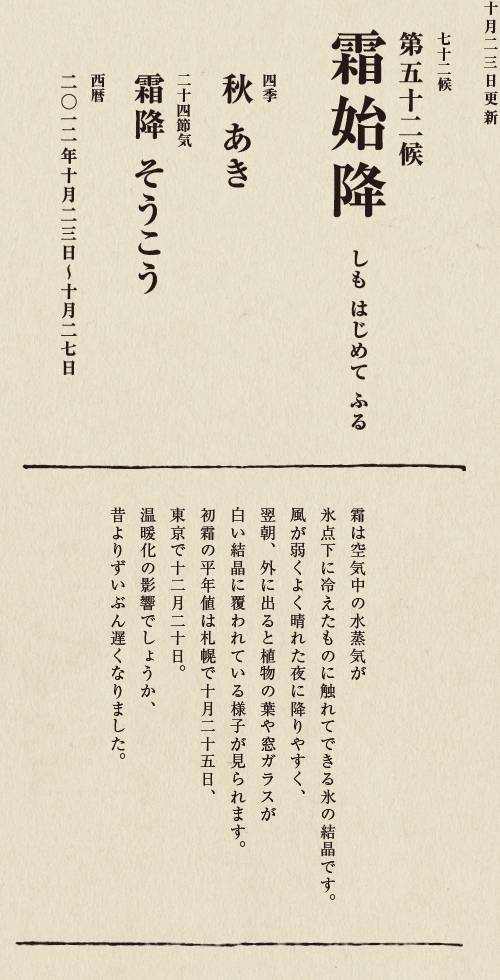 十月二三日更新
七十二候
第五十二候
霜始降 しも はじめて ふる
四季
秋 あき
二十四節気
霜降 そうこう
西暦
二〇一二年十月二三日〜十月二七日
霜は空気中の水蒸気が
氷点下に冷えたものに触れてできる氷の結晶です。
風が弱くよく晴れた夜に降りやすく、
翌朝、外に出ると植物の葉や窓ガラスが
白い結晶に覆われている様子が見られます。
初霜の平年値は札幌で十月二十五日、
東京で十二月二十日。
温暖化の影響でしょうか、
昔よりずいぶん遅くなりました。